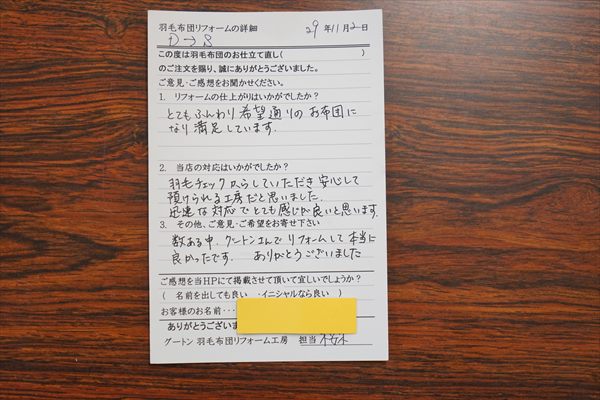 羽毛布団リフォームの詳細 29年11月2日
D→S
この度は羽毛布団のお仕立て直し( )
のご注文を賜り、誠にありがとうございました。
ご意見・ご感想をお聞かせください。
1. リフォームの仕上がりはいかがでしたか?
とてもふんわり希望通りのお布団に
なり満足しています.
2. 当店の対応はいかがでしたか?
羽毛チェックからしていただき安心して
預けられる工房だと思いました.
迅速な対応でとても感じが良いと思います.
3. その他、ご意見・ご希望をお寄せ下さい
数ある中、グートンさんでリフォームして本当に
良かったです. ありがとうございました
ご感想を当HPにて掲載させて頂いて宜しいでしょうか?
( 名前を出しても良い ・イニシャルなら良い )
お客様のお名前・・・
ありがとうございま
グートン 羽毛布団リフォーム工房 担当